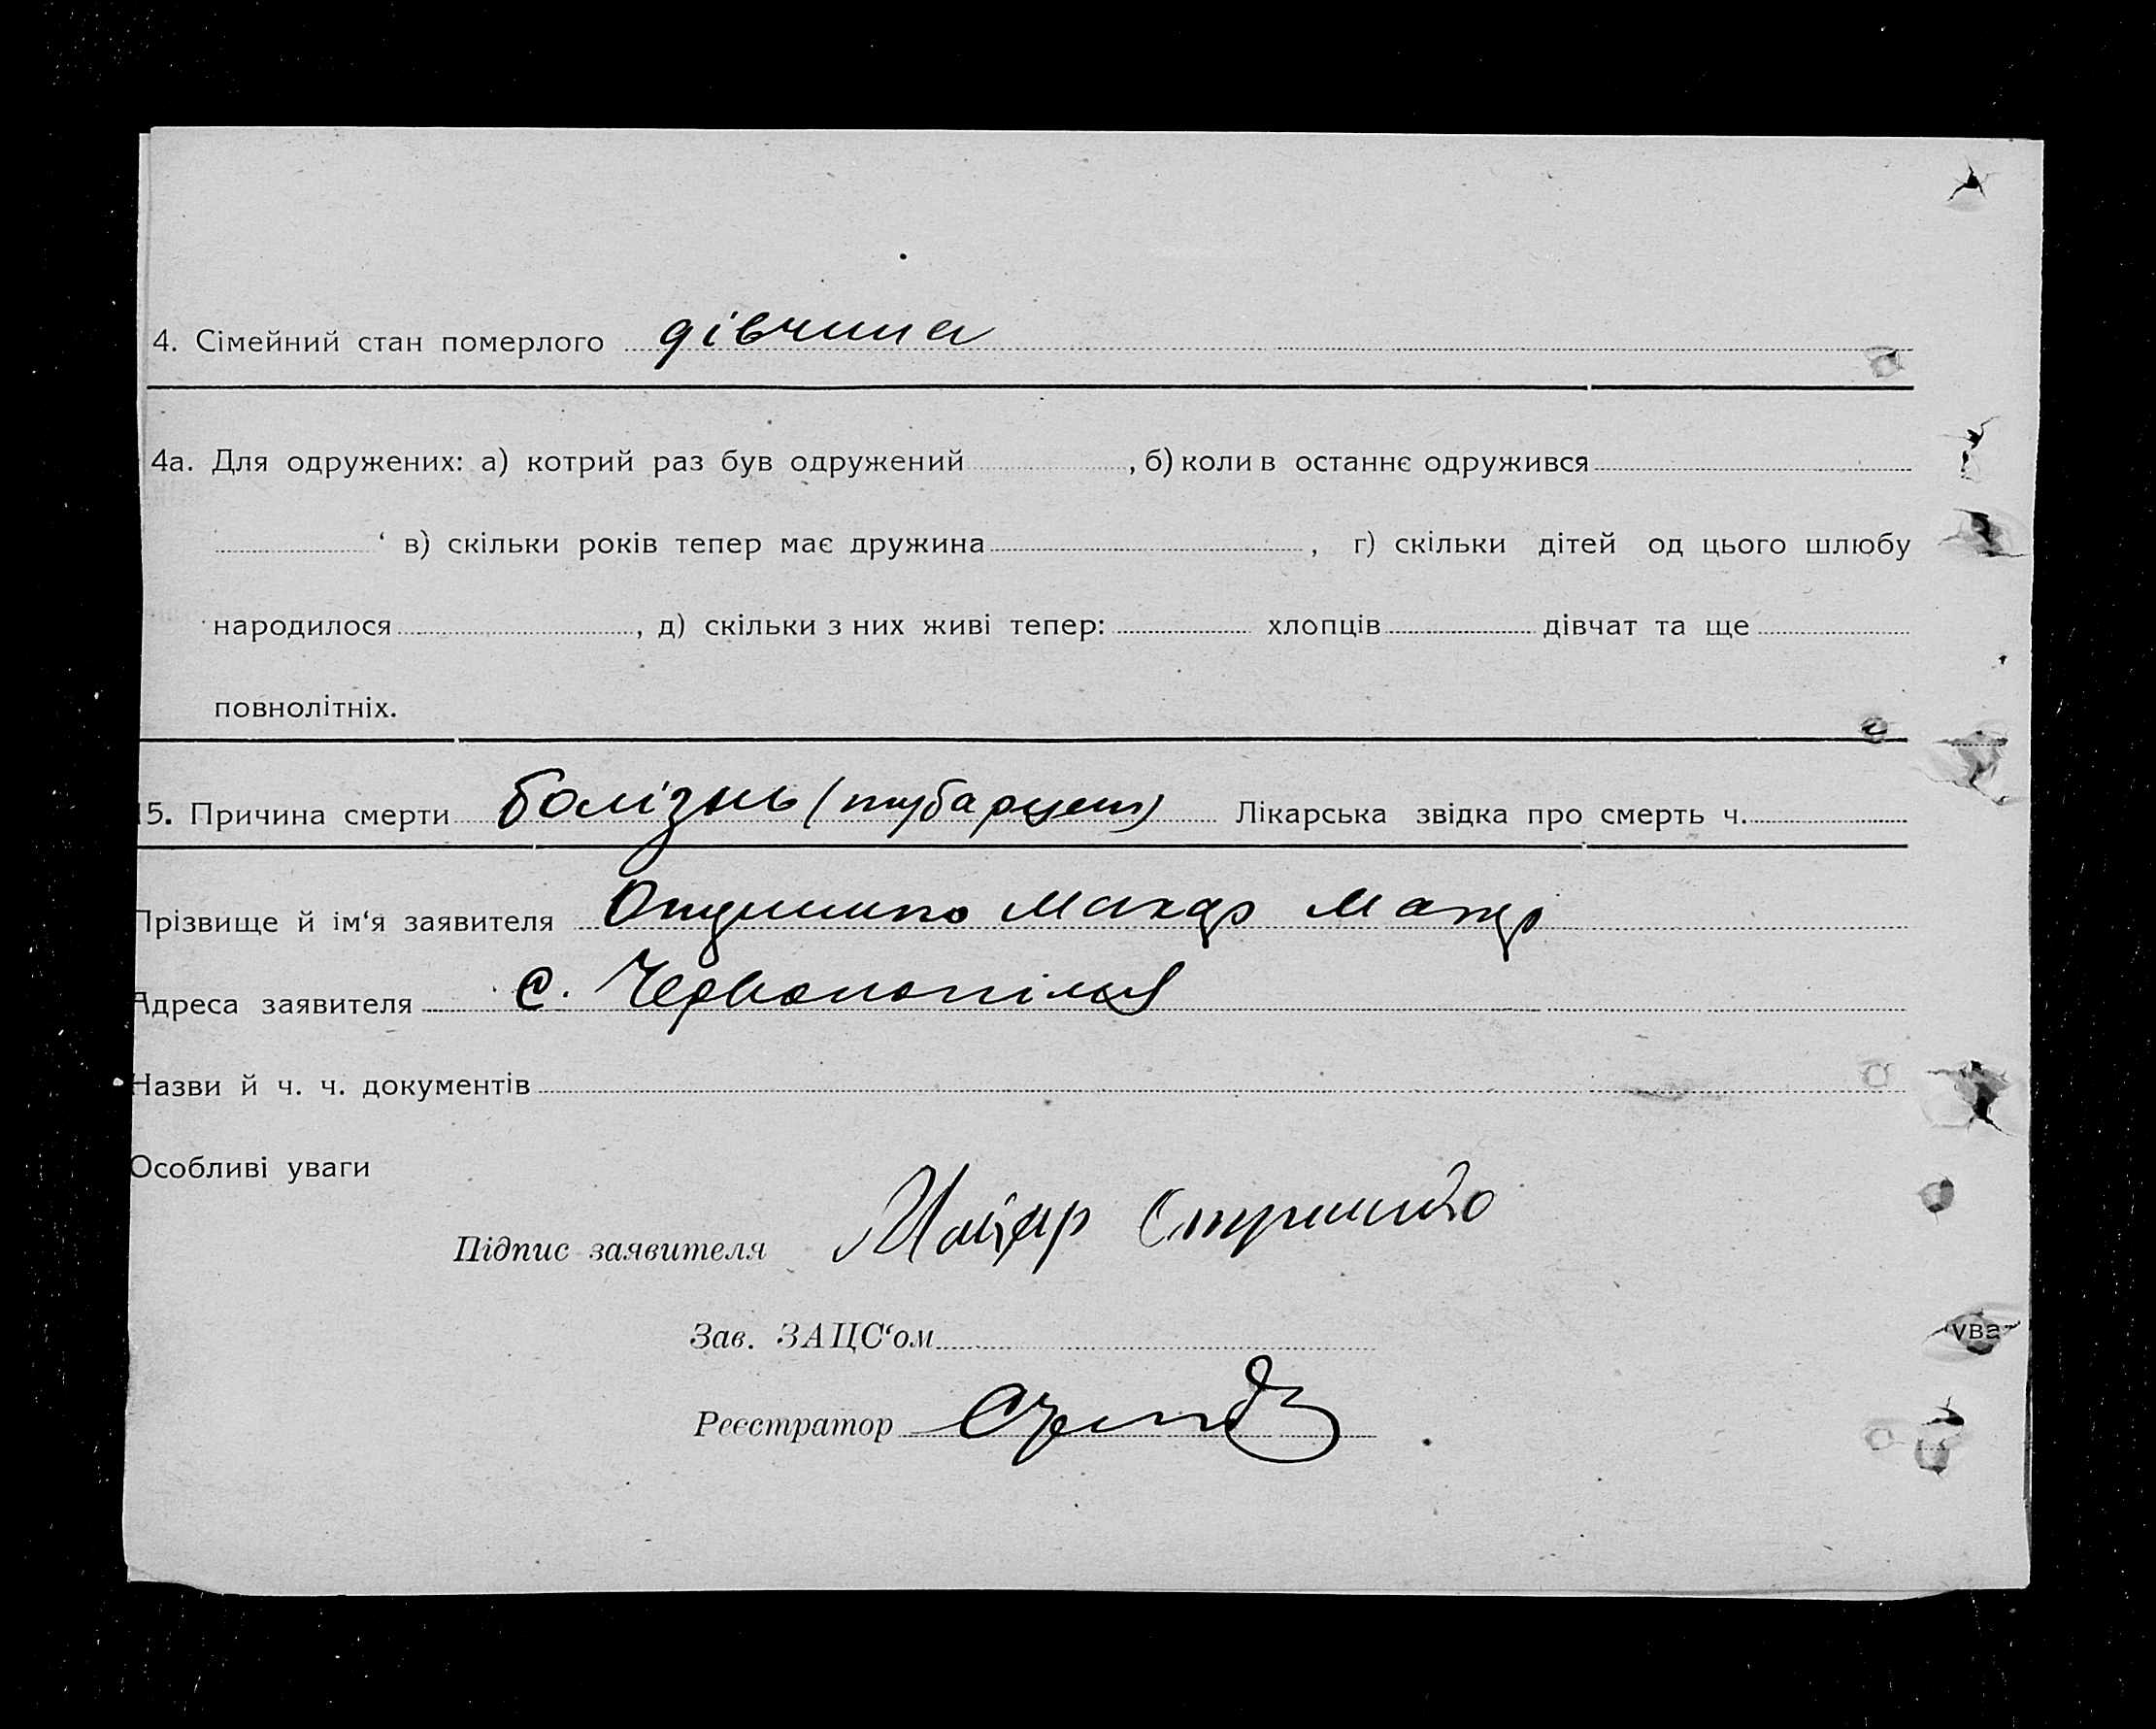 4. Сімейний стан померлого дівчина
4а. Для одружених: а) котрий раз був одружений , б) коли в останнє одружився
‘ в) скільки років тепер має дружина , г) скільки дітей од цього шлюбу
народилося , д) скільки з них живі тепер: хлопців дівчат та ще
повнолітніх.
15. Причина смерти болізнь ( Лікарська звідка про смерть ч.
Прізвище й ім‘я заявителя Макар
Адреса заявителя с. Червонопілля
Назви й ч. ч. документів
Особливі уваги
Підпис заявителя Макар
Зав. ЗАЦС‘ом
Реєстратор
ува